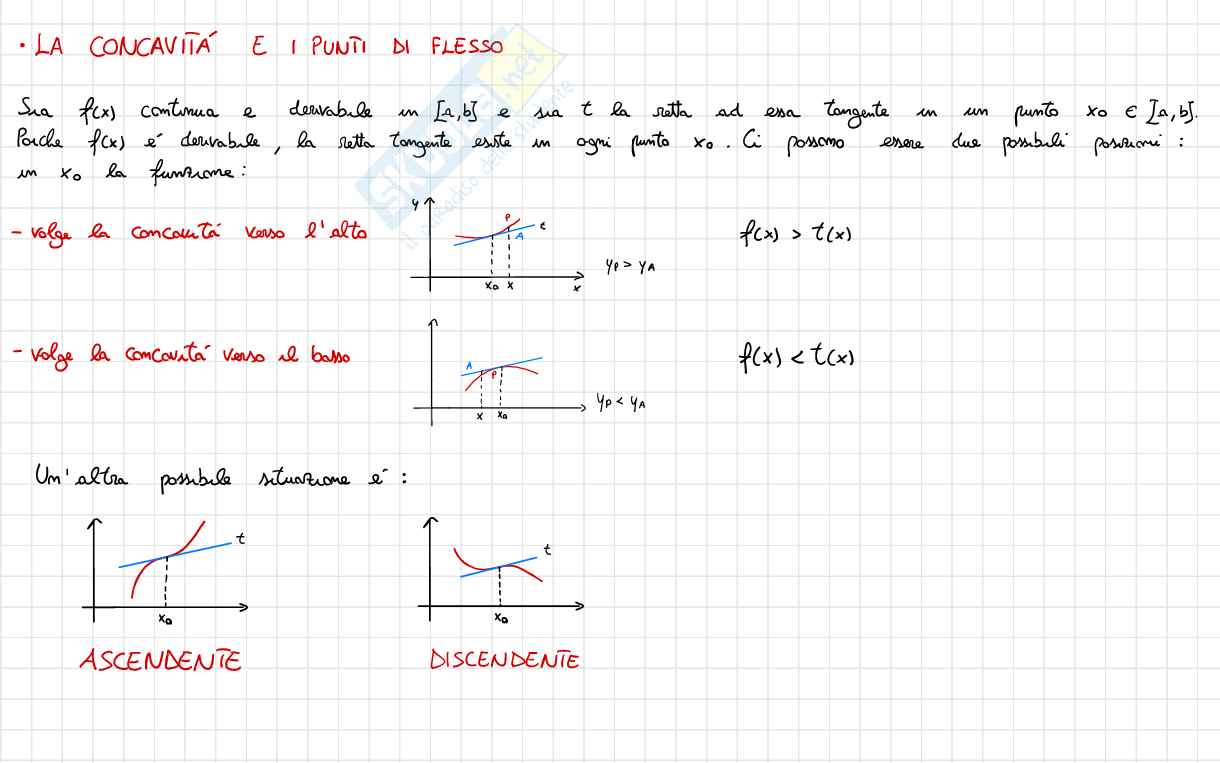 • LA CONCAVITÁ E I PUNTI DI FLESSO
Sia f(x) continua e derivabile in [a,b] e sia t la retta ad essa tangente in un punto x₀ ∈ [a,b].
Poiché f(x) é derivabile, la retta tangente esiste in ogni punto x₀. Ci possono essere due possibili posizioni :
in x₀ la funzione :
- volge la concavitá verso l'alto
y
P
t
A
x₀ x
x
yP > yA
f(x) > t(x)
- volge la concavitá verso il basso
A
P
x x₀
yP < yA
f(x) < t(x)
Un'altra possibile situazione é :
t
x₀
t
x₀
ASCENDENTE
DISCENDENTE
SKUOLA.net
il paradiso dello studente